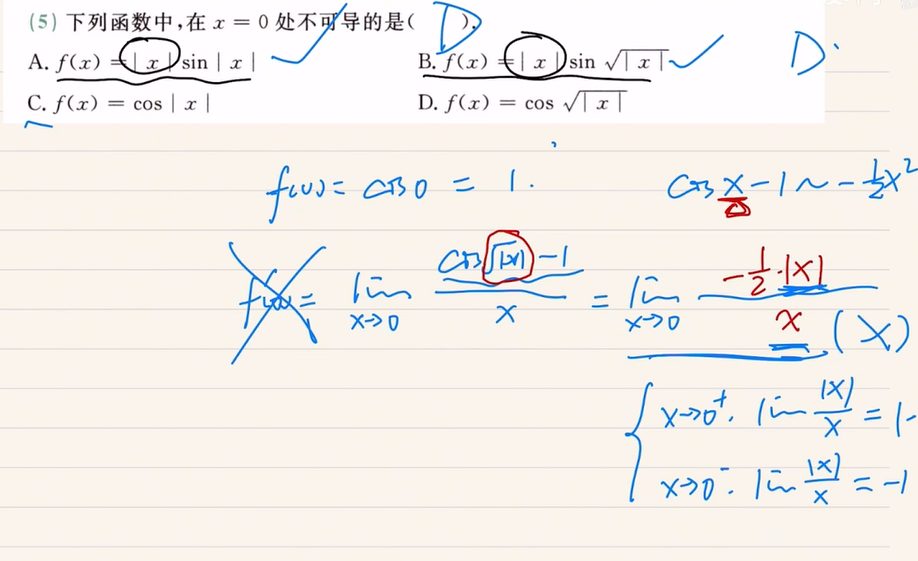 (5) 下列函数中,在 x = 0 处不可导的是( D ).
A. f(x) = | x | sin | x | B. f(x) = | x | sin √| x | D.
C. f(x) = cos | x | D. f(x) = cos √| x |
f(0) = cos 0 = 1. cos x - 1 ~ - 1/2 x²
f'(0) = lim x→0 (cos √|x| - 1)/x = lim x→0 (- 1/2 · |x|)/x (X)
x→0⁺. lim |x|/x = 1.
x→0⁻. lim |x|/x = -1